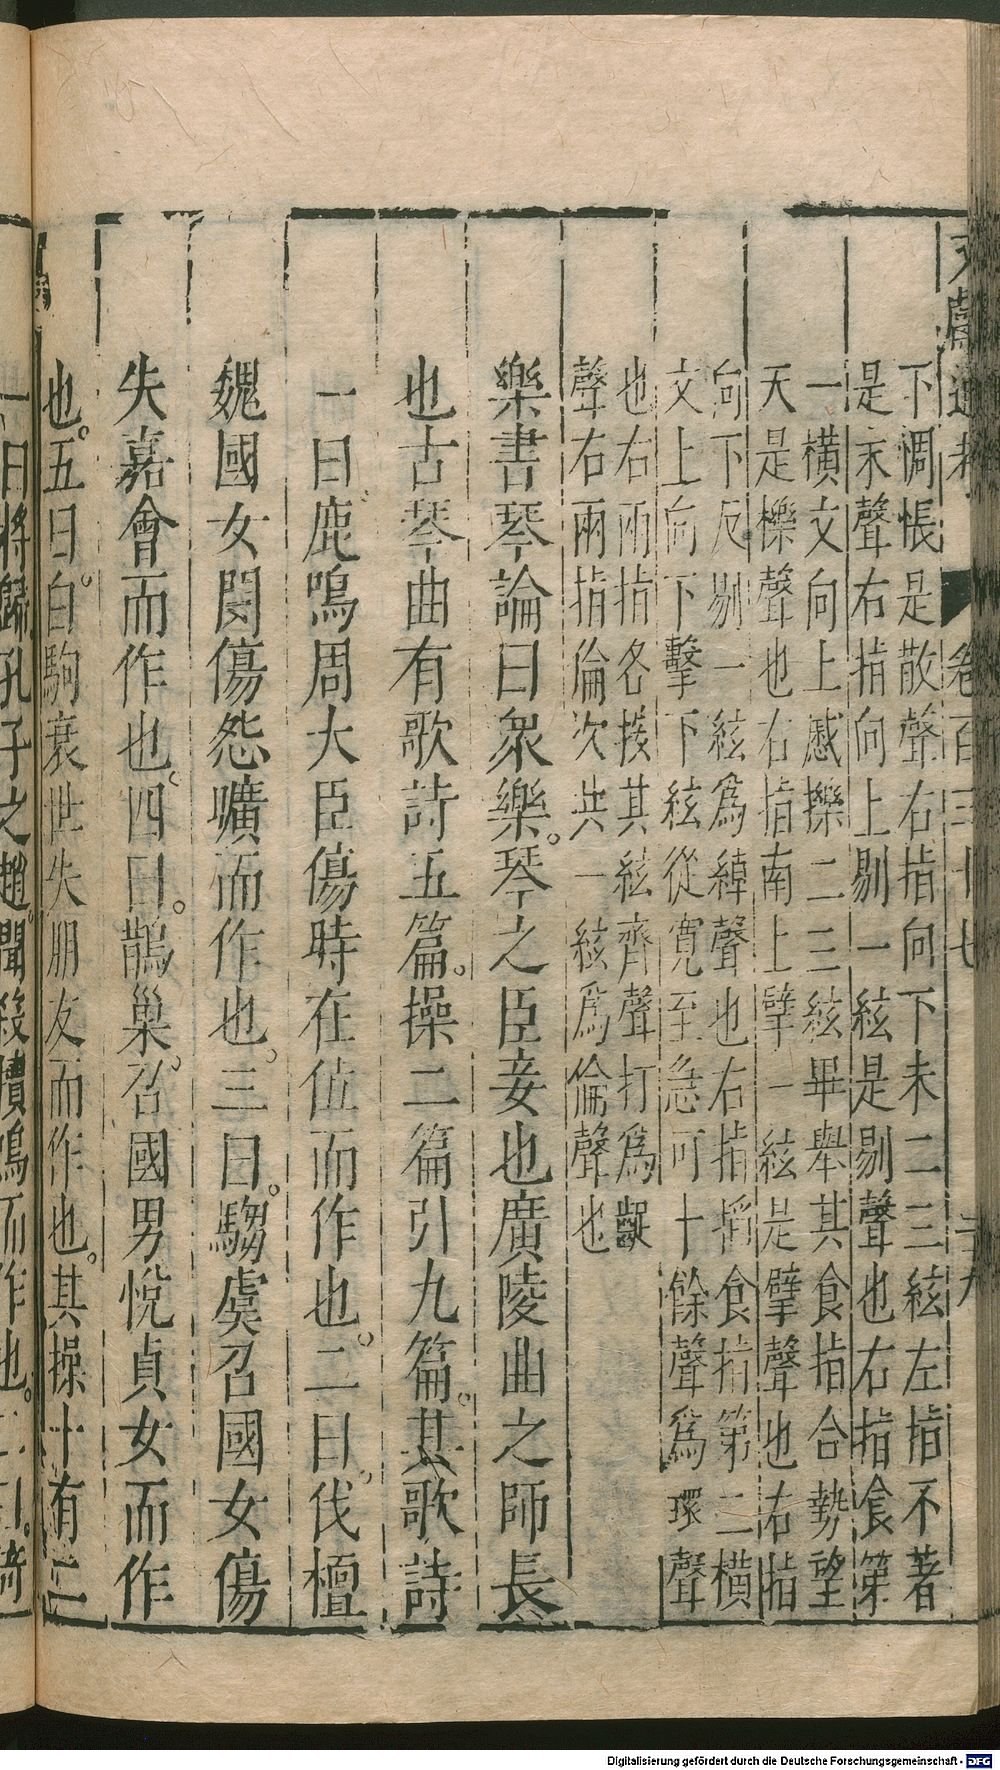 文獻通考 卷百三十七 三九
下惆悵是散聲右指向下未二三絃左指不著
是末聲右指向上剔一絃是剔聲也右指食第
一橫文向上慼擽二三絃畢舉其食指合勢望
天是擽聲也右指南上擘一絃是擘聲也右指
向下反剔一絃爲綽聲也右指搯食指第二橫
文上向下擊下絃從寬至急可十餘聲爲環聲
也右兩指各拨其絃齊聲打爲齪
聲右兩指倫次共一絃爲倫聲也
樂書琴論曰衆樂琴之臣妾也廣陵曲之師長
也古琴曲有歌詩五篇操二篇引九篇其歌詩
一曰鹿鳴周大臣傷時在位而作也二曰伐檀
魏國女閔傷怨曠而作也三曰騶虞召國女傷
失嘉會而作也四曰鵲巢召國男悅貞女而作
也五曰白駒衰世失朋友而作也其操十有二
一曰將歸孔子之趙聞殺犢鳴而作也二曰猗
Digitalisierung gefördert durch die Deutsche Forschungsgemeinschaft - DFG